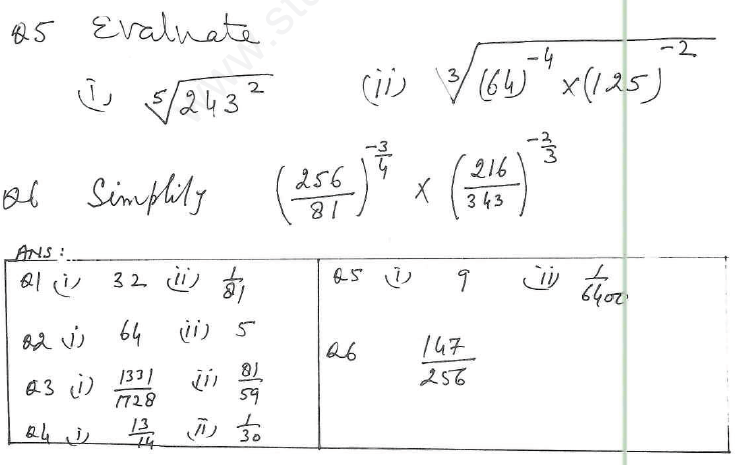 Q5 Evaluate
(i) ⁵√243² (ii) ³√(64)⁻⁴ × (125)⁻²
Q6 Simplify (256/81)^(-3/4) × (216/343)^(-2/3)
ANS:
Q1 (i) 32 (ii) 1/81
Q2 (i) 64 (ii) 5
Q3 (i) 1331/1728 (ii) 81/59
Q4 (i) 13/14 (ii) 1/30
Q5 (i) 9 (ii) 1/6400
Q6 147/256